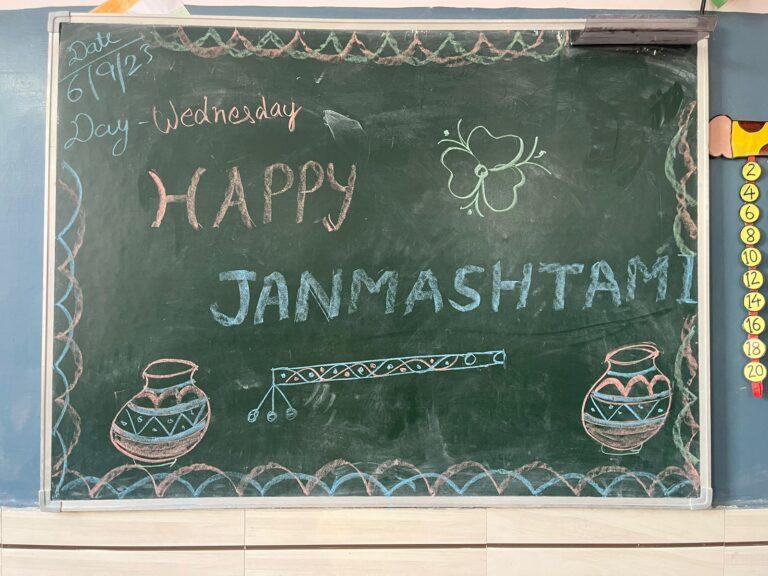 Date
6/9/23
Day - Wednesday
HAPPY
JANMASHTAMI
2
4
6
8
10
12
14
16
18
20